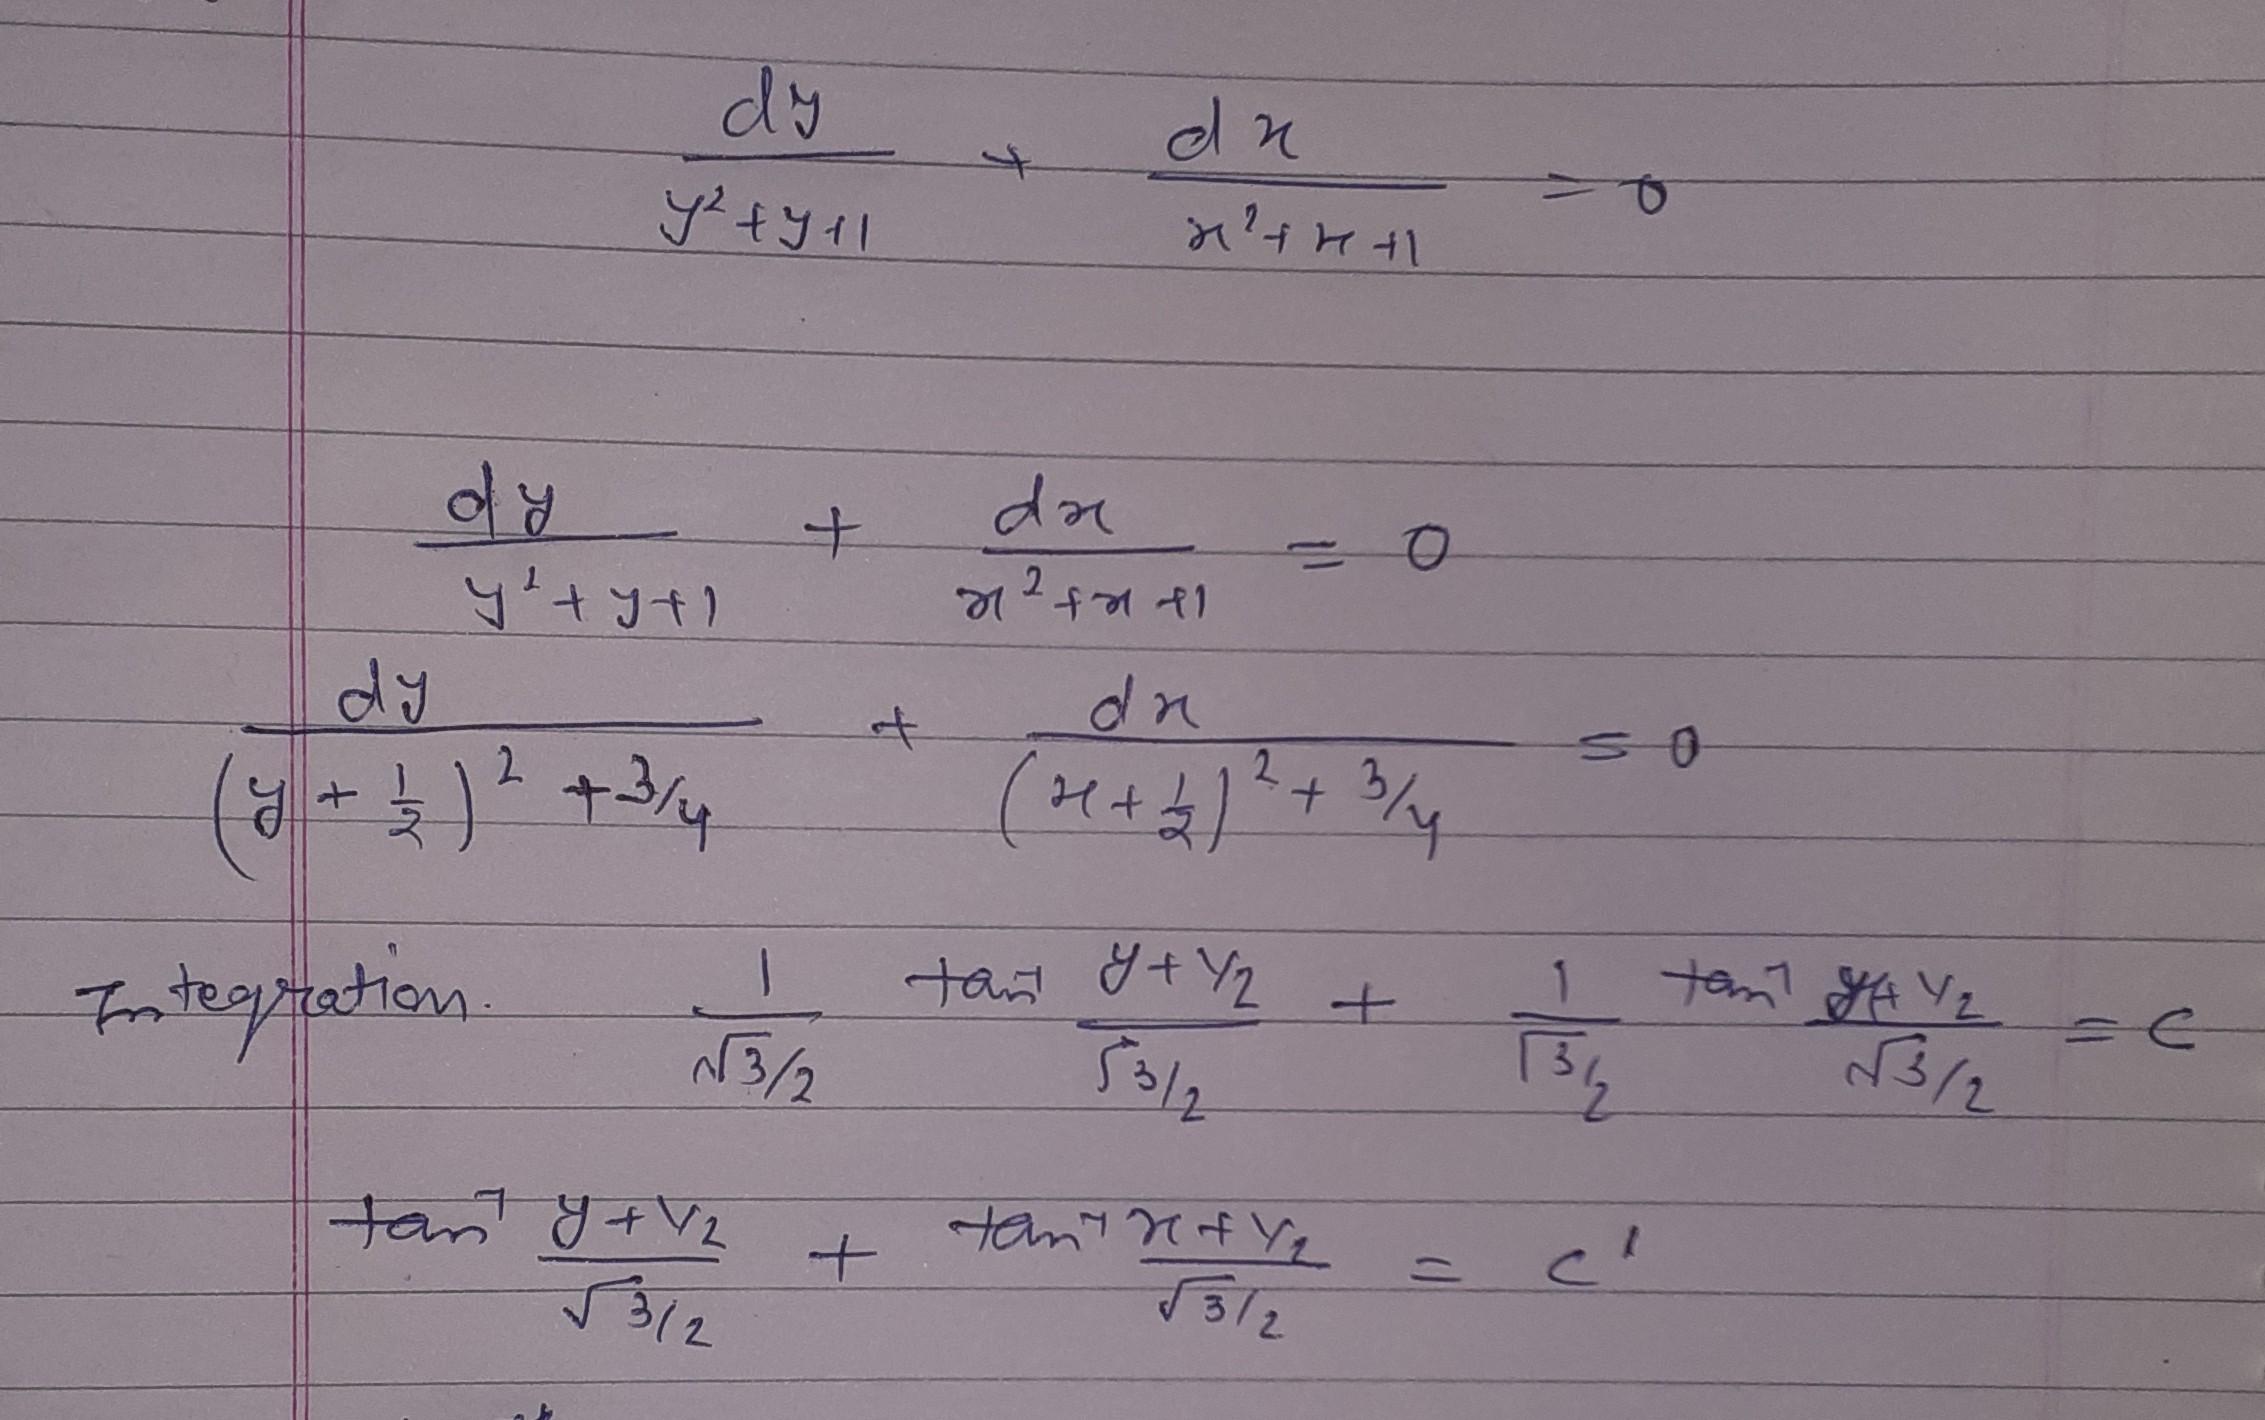 dy/(y²+y+1) + dx/(x²+x+1) = 0
dy/(y²+y+1) + dx/(x²+x+1) = 0
dy/((y+1/2)²+3/4) + dx/((x+1/2)²+3/4) = 0
Integration. 1/(√3/2) tan⁻¹ (y+1/2)/(√3/2) + 1/(√3/2) tan⁻¹ (y+1/2)/(√3/2) = c
tan⁻¹ (y+1/2)/(√3/2) + tan⁻¹ (x+1/2)/(√3/2) = c'